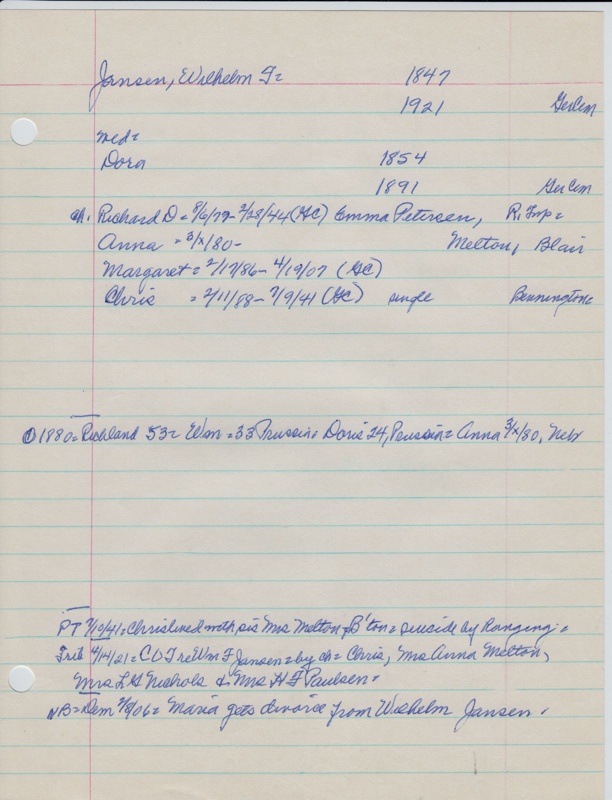 Jansen, Wilhelm F= 1847
1921 GerCem
Med=
Dora 1854
1891 GerCem
ch. Richard D = 8/6/77- 2/28/44 (GC) Emma Petersen, R. Twp=
Anna = 3/x/80- Melton, Blair
Margaret = 2/17/86- 4/19/07 (GC)
Chris = 2/11/88- 7/9/41 (GC) single Bennington=
1880= Richland 53= Wm = 33 Prussia= Doris 24, Prussia= Anna 3/x/80, Nebr
PT 7/10/41= Chris lived with sis Mrs Melton B'ton= suicide by hanging=
Trib 4/14/21= C O T re Wm F Jansen= by ch= Chris, Mrs Anna Melton,
Mrs L H Nichols & Mrs H F Paulsen.
NB= Dem /06= Maria gets divorce from Wilhelm Jansen.